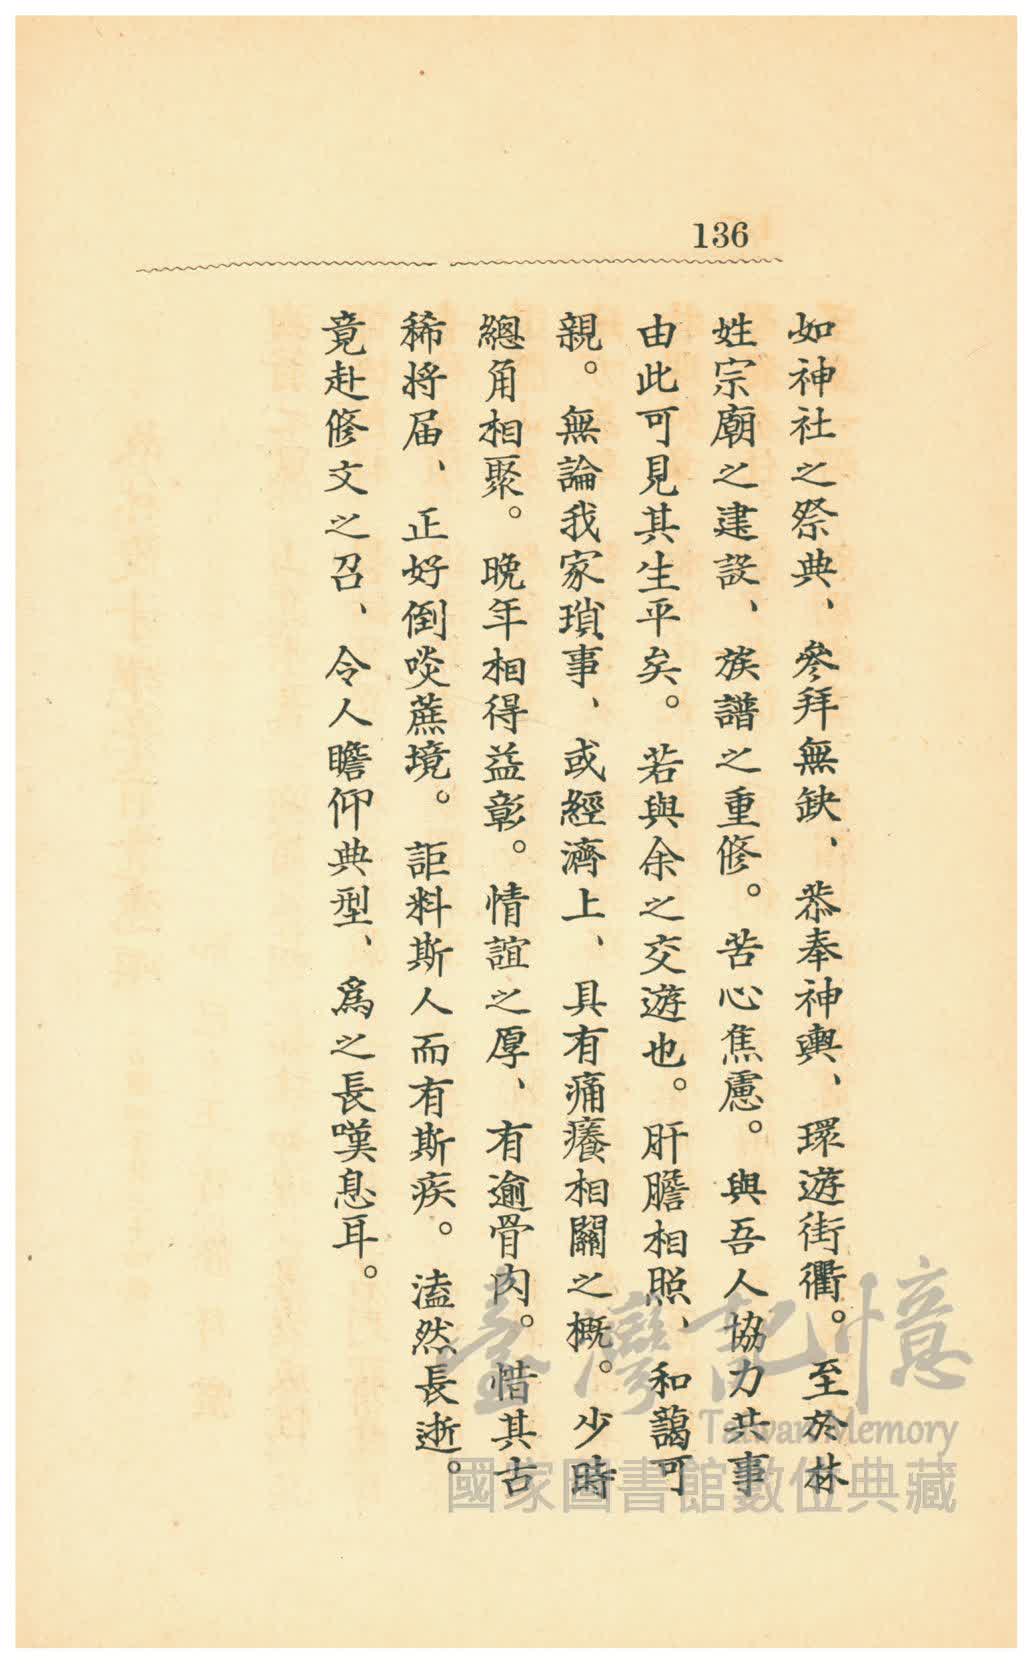 136
如神社之祭典、參拜無缺、恭奉神輿、環遊街衢。至於林
姓宗廟之建設、族譜之重修。苦心焦慮。與吾人協力共事
由此可見其生平矣。若與余之交遊也。肝膽相照、和藹可
親。無論我家瑣事、或經濟上、具有痛癢相關之概。少時
總角相聚。晚年相得益彰。情誼之厚、有逾骨肉。惜其古
稀將届、正好倒啖蔗境。詎料斯人而有斯疾。溘然長逝。
竟赴修文之召、令人瞻仰典型、爲之長嘆息耳。
臺灣記憶
Taiwan Memory
國家圖書館數位典藏